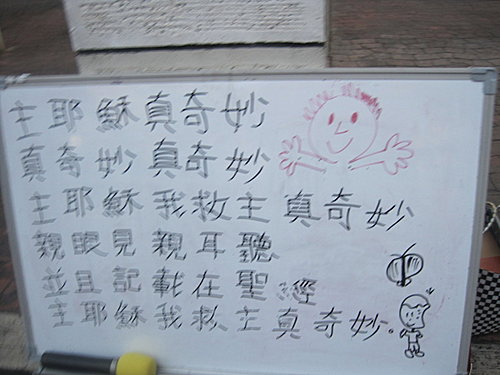 主耶穌真奇妙
真奇妙真奇妙
主耶穌我救主真奇妙
親眼見親耳聽
並且記載在聖經
主耶穌我救主真奇妙